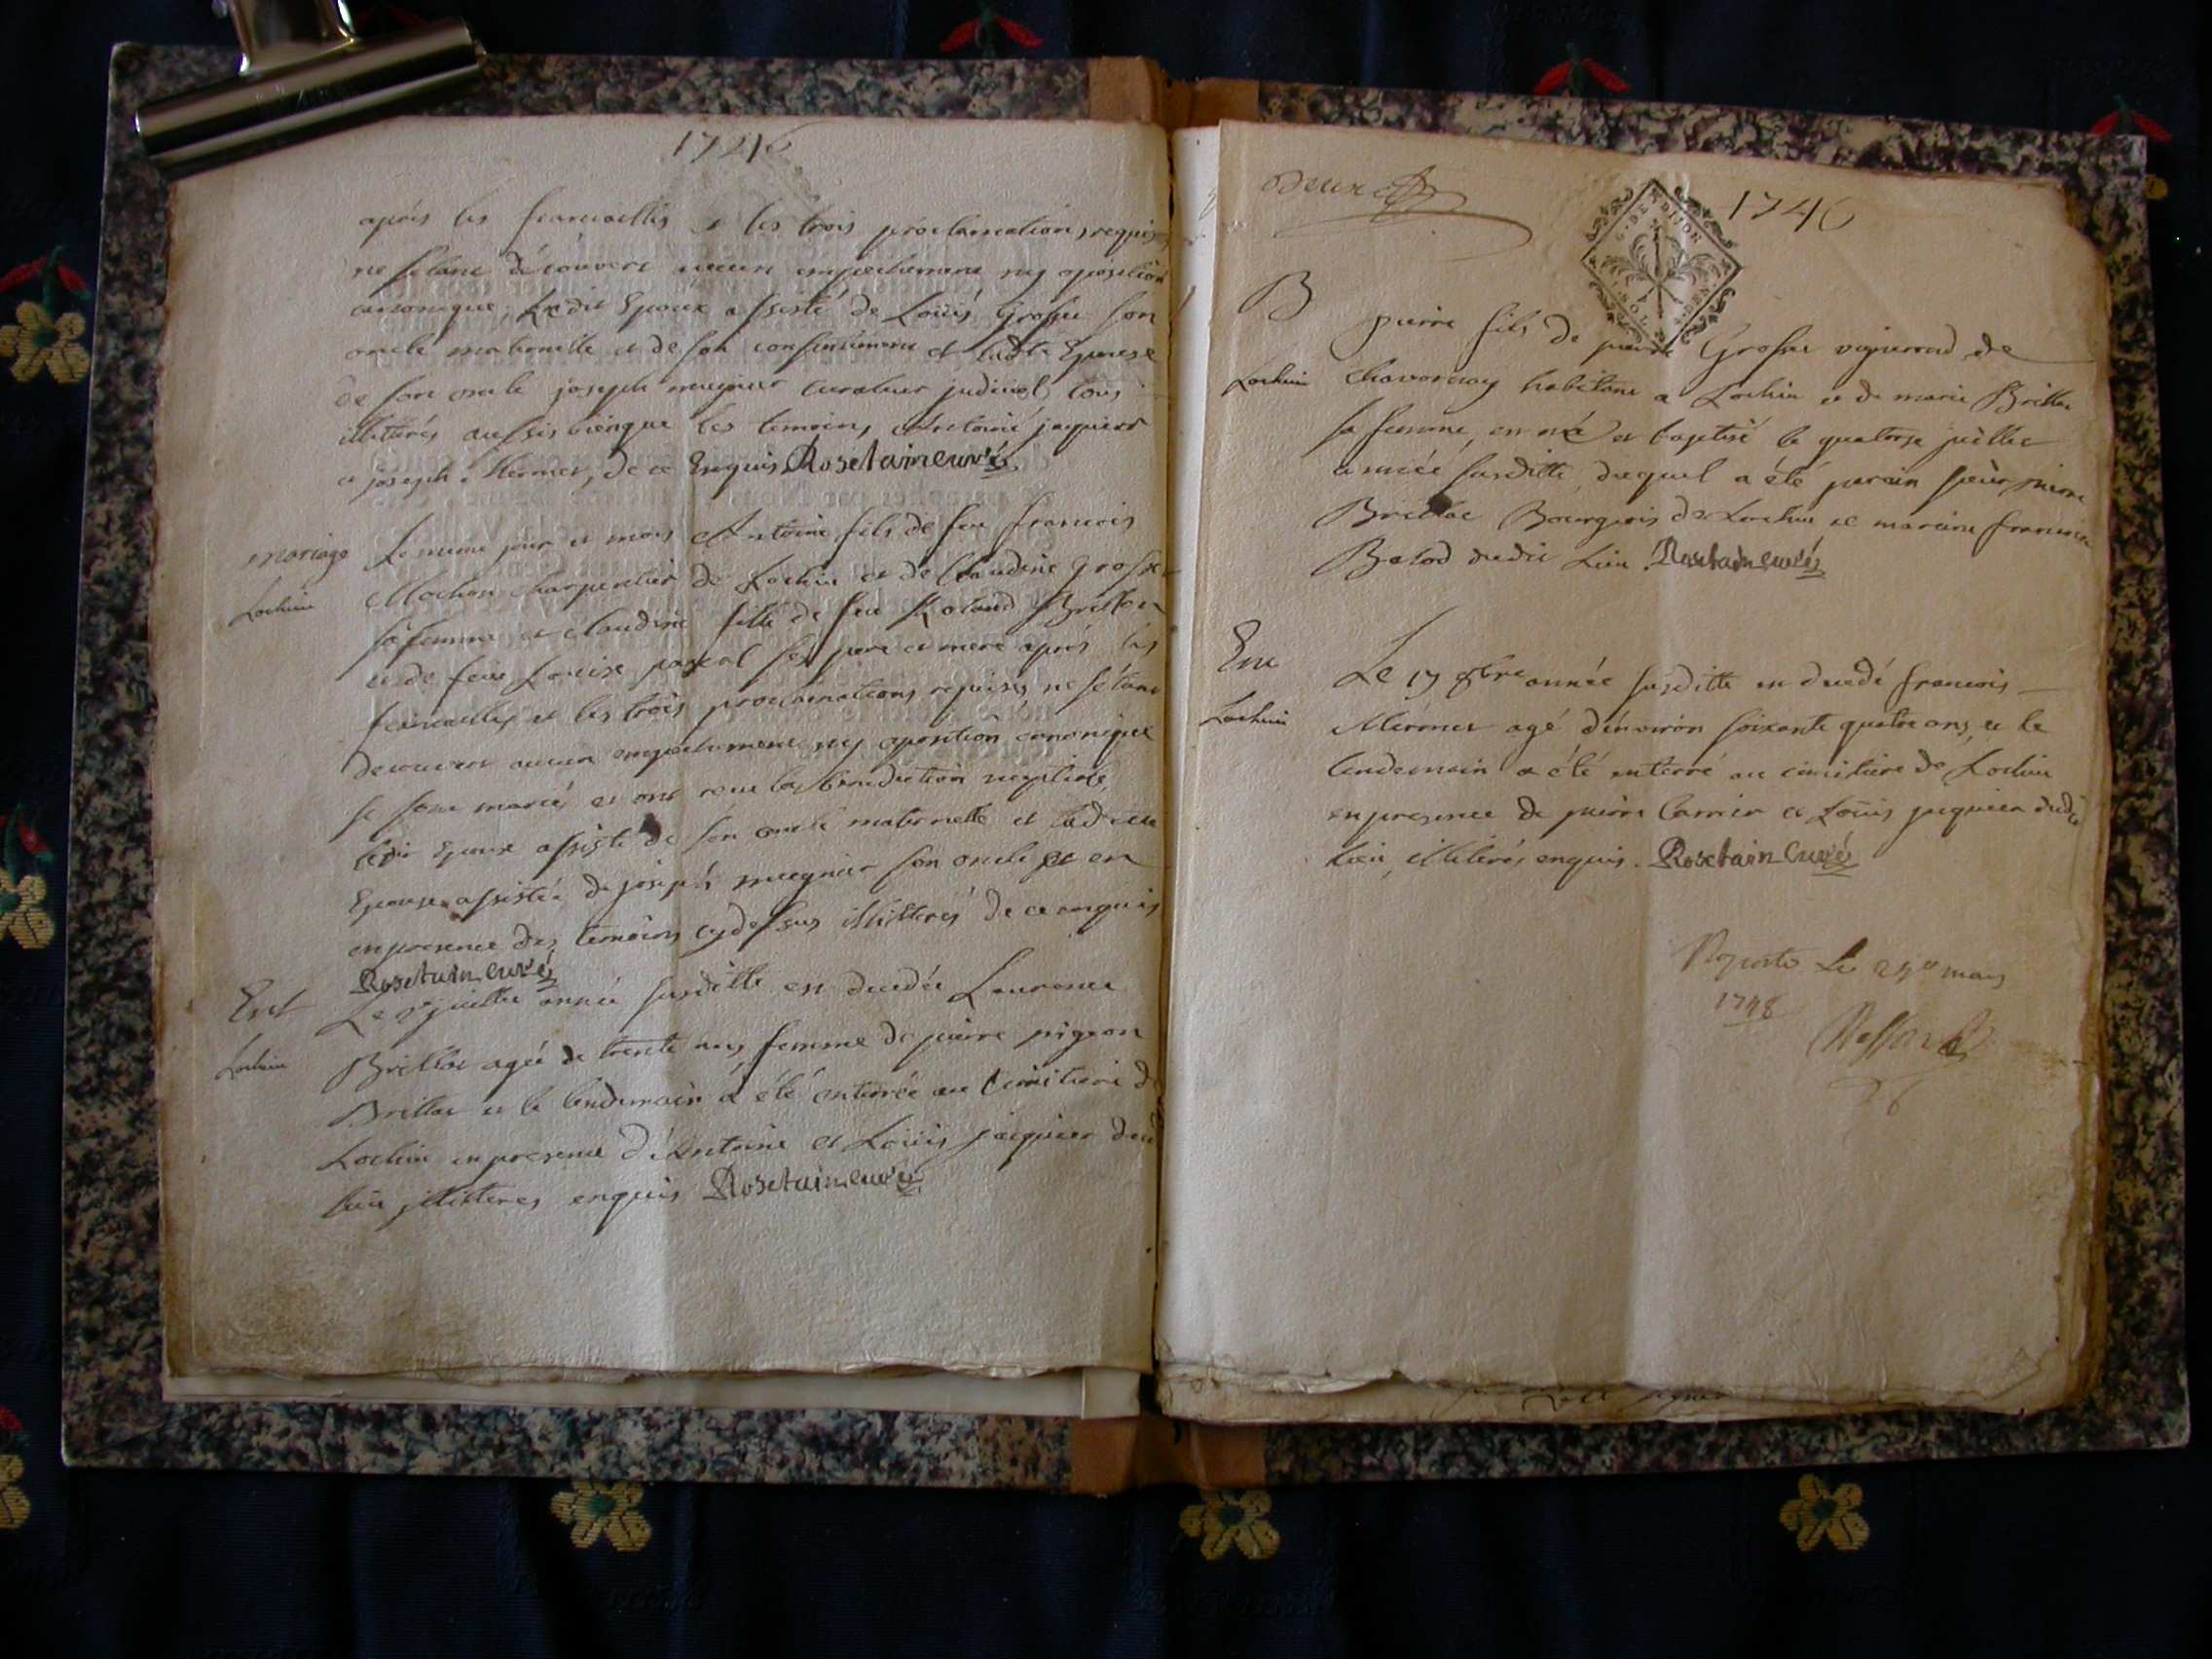 1746
après les fiancailles et les trois proclamations requises
ne s'etant découvert aucun empechement ny oposition
canonique, Ledit Epoux assisté de Loüis Grosse son
oncle maternelle et de son consentement et ladte Epouse
de son oncle joseph mugnier curateur judiciel, tous
illiterés aussi bienque les temoins, Antoine jaquier
et joseph Mermet, de ce Enquis Rosetain curé
mariage Le meme jour et mois Antoine fils de feu francois
Lochieu Mochon charpentier de Lochieu et de Claudine Grosse
sa femme et claudine fille de feu Roland Brillat
et de feue Louise pascal ses pere et mere après les
fiancailles et les trois proclamations requises, ne s'étant
decouvert aucun empechement ny oposition canonique
se sont mariés et ont receu la benediction nuptiale,
ledit Epoux assisté de son oncle maternelle et ladite
Epouse assistée de joseph mugnier son oncle et en
en presence des temoins cydessus illitterés de ce enquis
Rosetain curé
Ent Le juillet année susditte est decedée Laurence
Lochieu Brillat agée de trente ans femme de pierre pigeon
Brillat et le lendemain a été enterrée au cimitiere de
Lochieu en presence d'Antoine et Loüis jaquier dud
lieu illitteres enquis Rosetain curé
Deux
G. DE DIJON
1746
B pierre fils de pierre Grosse vigneron de
Lochieu Chavornay habitant a Lochieu et de marie Brillat
sa femme, est né et baptisé le quatorze juillet
année susditte, duquel a été parain sieur pierre
Brillat Bourgeois de Lochieu et maraine francoise
Balod dudit Lieu. Rosetain curé
Ent Le 17 8bre année susditte est decedé francois
Lochieu Mermet agé d'environ soixante quatre ans, et le
lendemain a été enterré au cimitiere de Lochieu
en presence de pierre Carrier et Loüis jaquier dudit
lieu, illiterés enquis. Rosetain curé
Raporté Le mars
1748